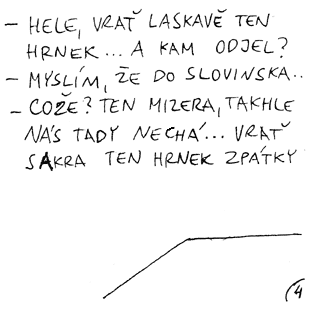 - HELE, VRAŤ LASKAVĚ TEN
HRNEK... A KAM ODJEL?
- MYSLÍM, ŽE DO SLOVINSKA..
- COŽE? TEN MIZERA, TAKHLE
NÁS TADY NECHÁ... VRAŤ
SAKRA TEN HRNEK ZPÁTKY
(4